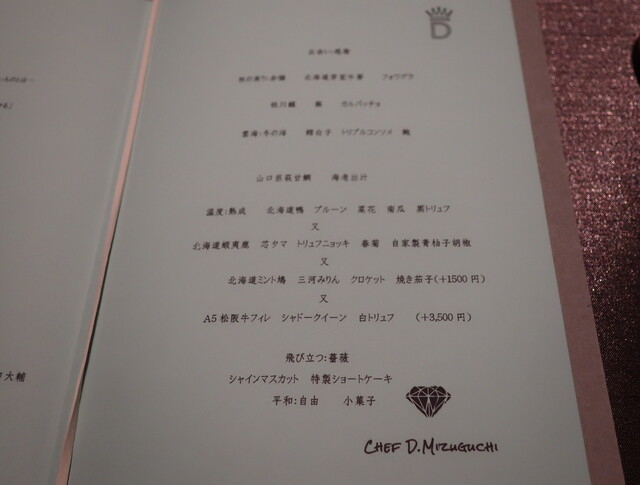 D
出会い:感謝
秋の実り:余韻 北海道芽室牛蒡 フォワグラ
桂川鯉 蕪 カルパッチョ
雲海:冬の海 鱈白子 トリプルコンソメ 鮑
山口県萩甘鯛 海老出汁
温度:熟成 北海道鴨 プルーン 菜花 南瓜 黒トリュフ
又
北海道蝦夷鹿 芯タマ トリュフニョッキ 春菊 自家製青柚子胡椒
又
北海道ミント鳩 三河みりん クロケット 焼き茄子(+1500円)
又
A5松阪牛フィレ シャドークイーン 白トリュフ (+3,500円)
飛び立つ:薔薇
シャインマスカット 特製ショートケーキ
平和:自由 小菓子
大輔
CHEF D.MIZUGUCHI